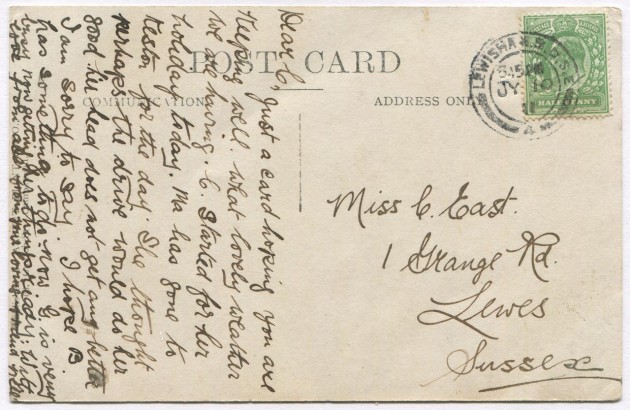 POST CARD
COMMUNICATION
ADDRESS ONLY
LEWISHAM
JY 10
11
4
HALFPENNY
Dear C, Just a card hoping you are
keeping well. What lovely weather
we are having. C Started for her
holiday today. Ma has gone to
Keston for the day. She thought
perhaps the drive would do her
good her head does not get any better
I am sorry to say. I hope B
has something to do now. G is very
busy now getting her things ready. With
love from all from
Miss C. East.
1 Grange Rd.
Lewes
Sussex